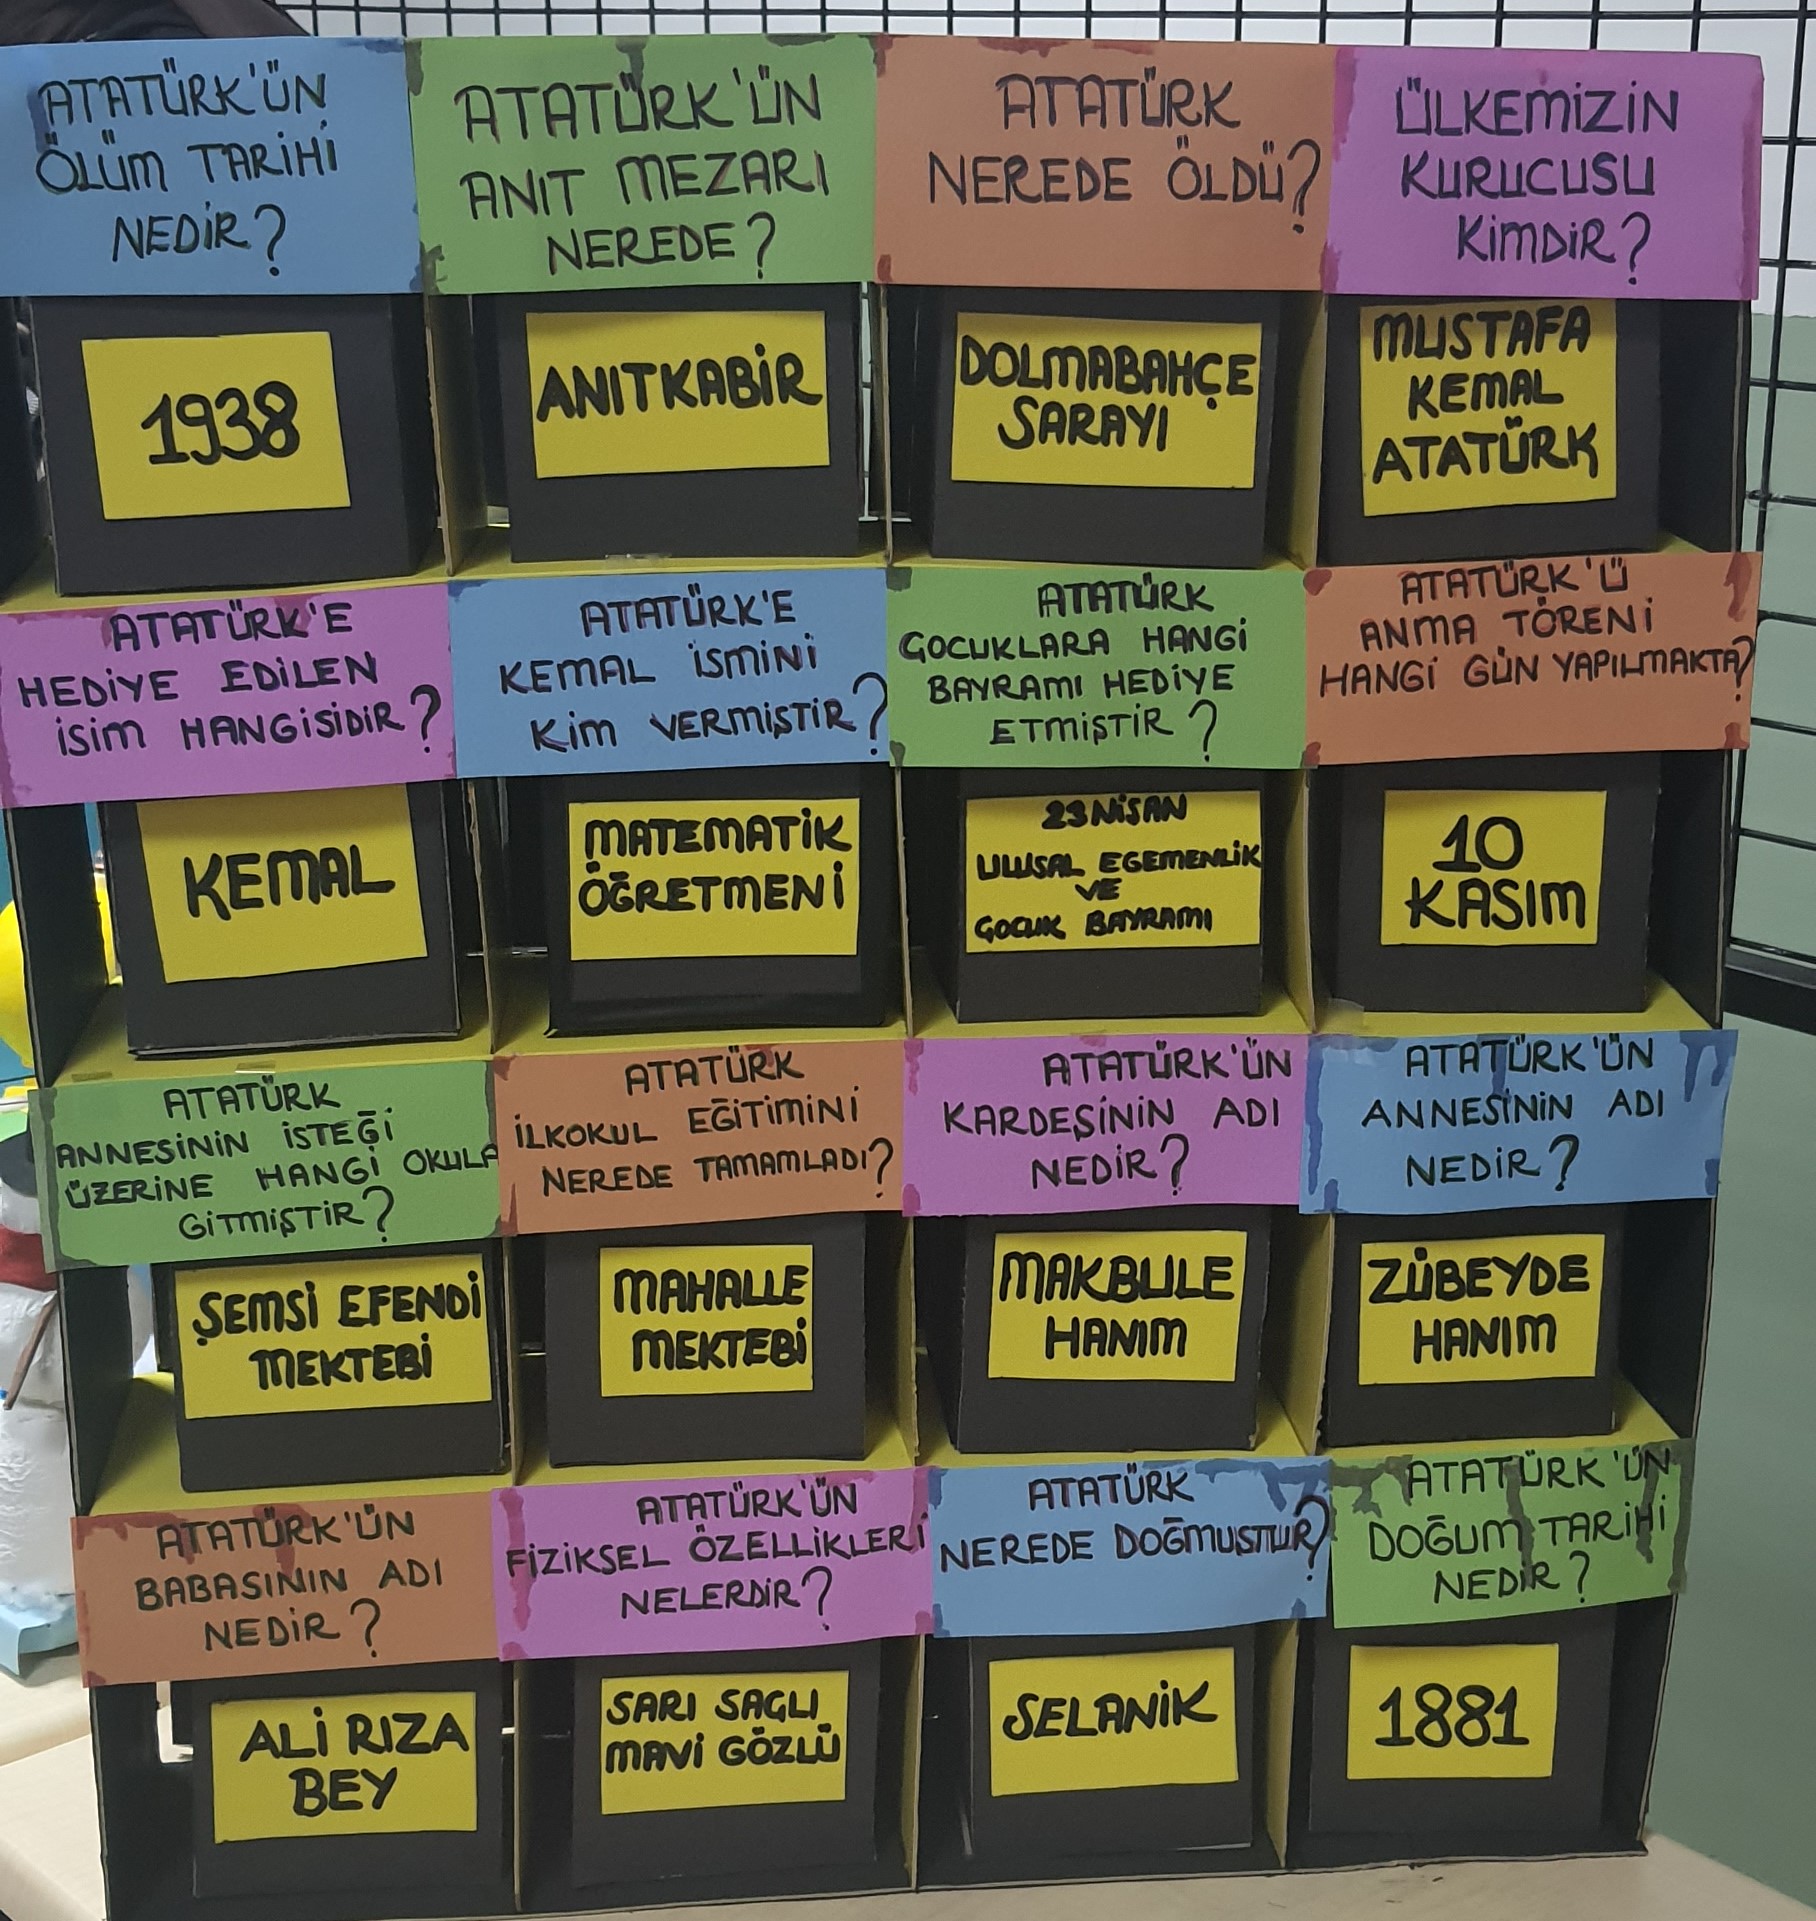 ATATÜRK'ÜN
ÖLÜM TARİHİ
NEDİR?
1938
ATATÜRK'ÜN
ANIT MEZARI
NEREDE?
ANITKABİR
ATATÜRK
NEREDE ÖLDÜ?
DOLMABAHÇE
SARAYI
ÜLKEMİZİN
KURUCUSU
KİMDİR?
MUSTAFA
KEMAL
ATATÜRK
ATATÜRK'E
HEDİYE EDİLEN
İSİM HANGİSİDİR?
KEMAL
ATATÜRK'E
KEMAL İSMİNİ
KİM VERMİŞTİR?
MATEMATİK
ÖĞRETMENİ
ATATÜRK
ÇOCUKLARA HANGİ
BAYRAMI HEDİYE
ETMİŞTİR?
23 NİSAN
ULUSAL EGEMENLİK
VE
ÇOCUK BAYRAMI
ATATÜRK'Ü
ANMA TÖRENİ
HANGİ GÜN YAPILMAKTA?
10
KASIM
ATATÜRK
ANNESİNİN İSTEĞİ
ÜZERİNE HANGİ OKULA
GİTMİŞTİR?
ŞEMSİ EFENDİ
MEKTEBİ
ATATÜRK
İLKOKUL EĞİTİMİNİ
NEREDE TAMAMLADI?
MAHALLE
MEKTEBİ
ATATÜRK'ÜN
KARDEŞİNİN ADI
NEDİR?
MAKBULE
HANIM
ATATÜRK'ÜN
ANNESİNİN ADI
NEDİR?
ZÜBEYDE
HANIM
ATATÜRK'ÜN
BABASININ ADI
NEDİR?
ALİ RIZA
BEY
ATATÜRK'ÜN
FİZİKSEL ÖZELLİKLERİ
NELERDİR?
SARI SAÇLI
MAVİ GÖZLÜ
ATATÜRK
NEREDE DOĞMUSTUR?
SELANİK
ATATÜRK'ÜN
DOĞUM TARİHİ
NEDİR?
1881